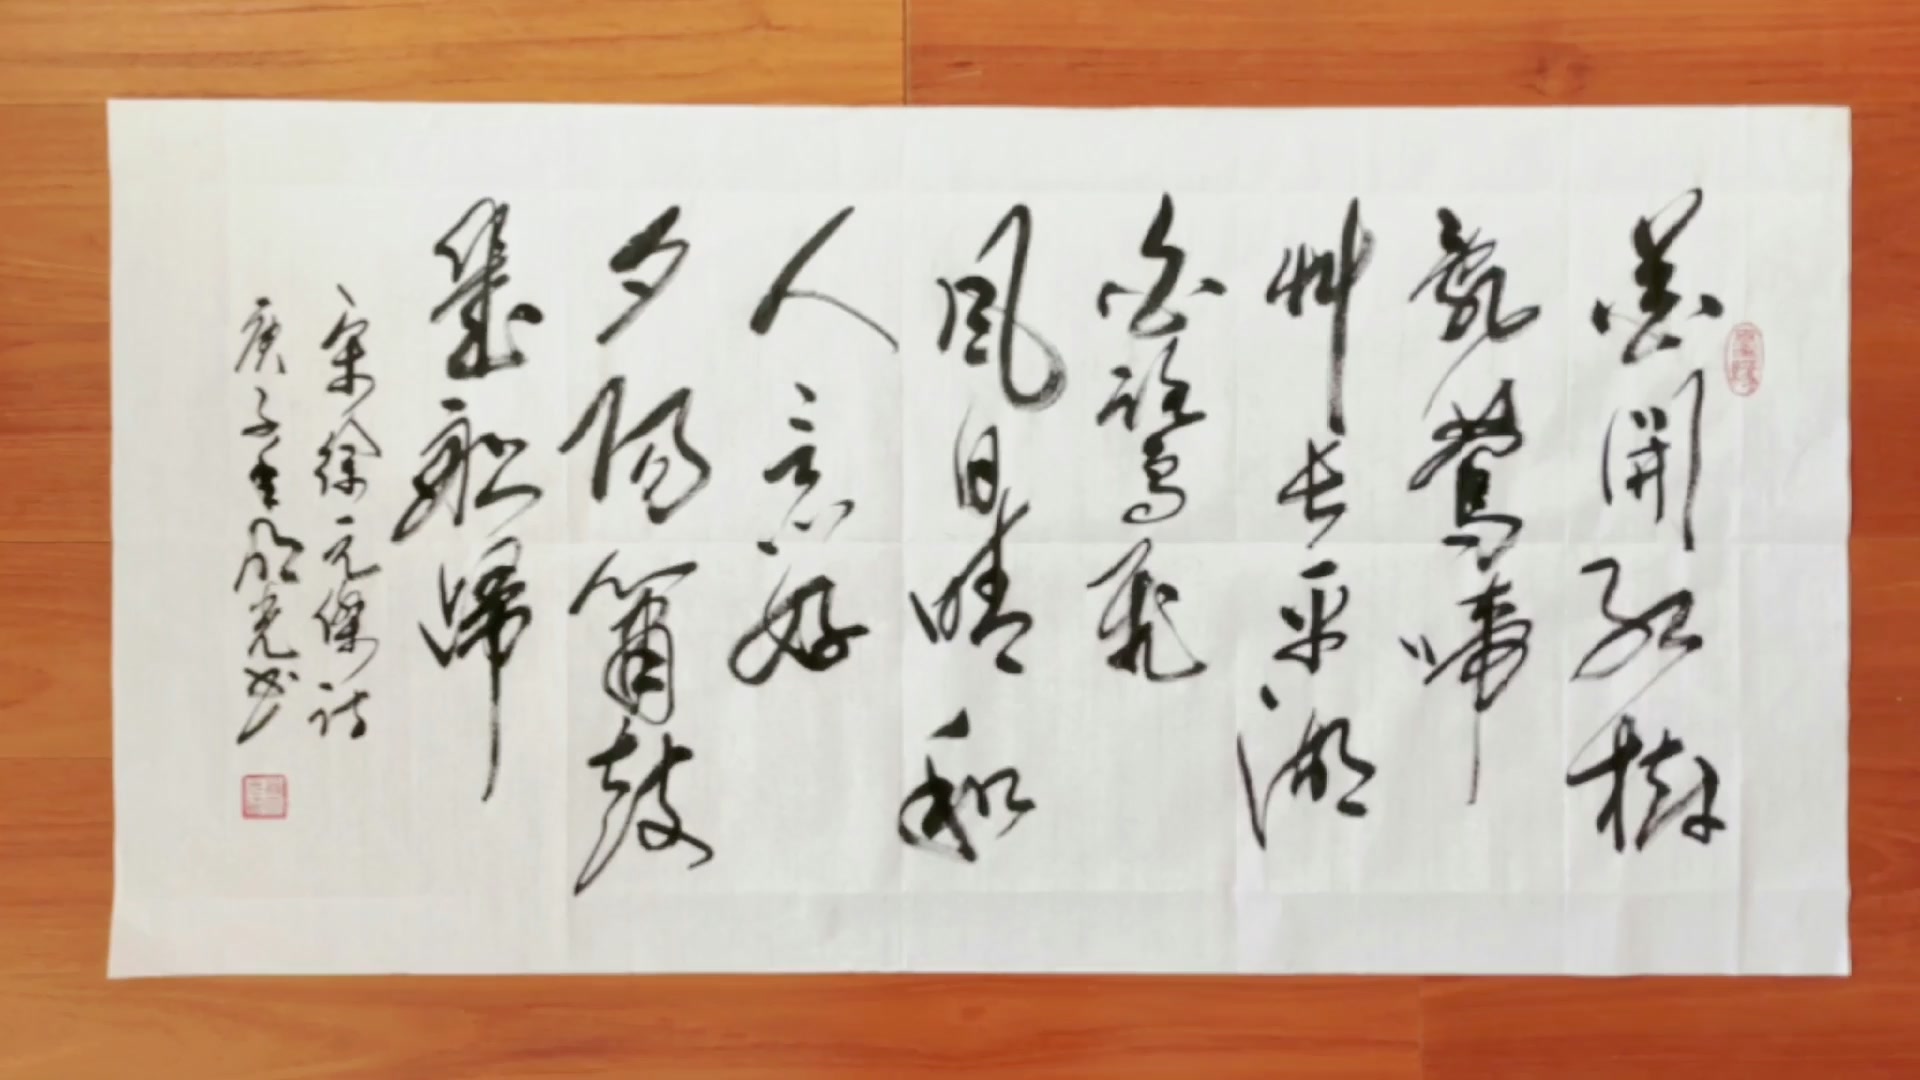 花開紅樹
亂鶯啼
艸長平湖
白鷺飛
風日晴和
人意好
夕陽簫鼓
幾船歸
宋徐元傑詩
庚子明光书